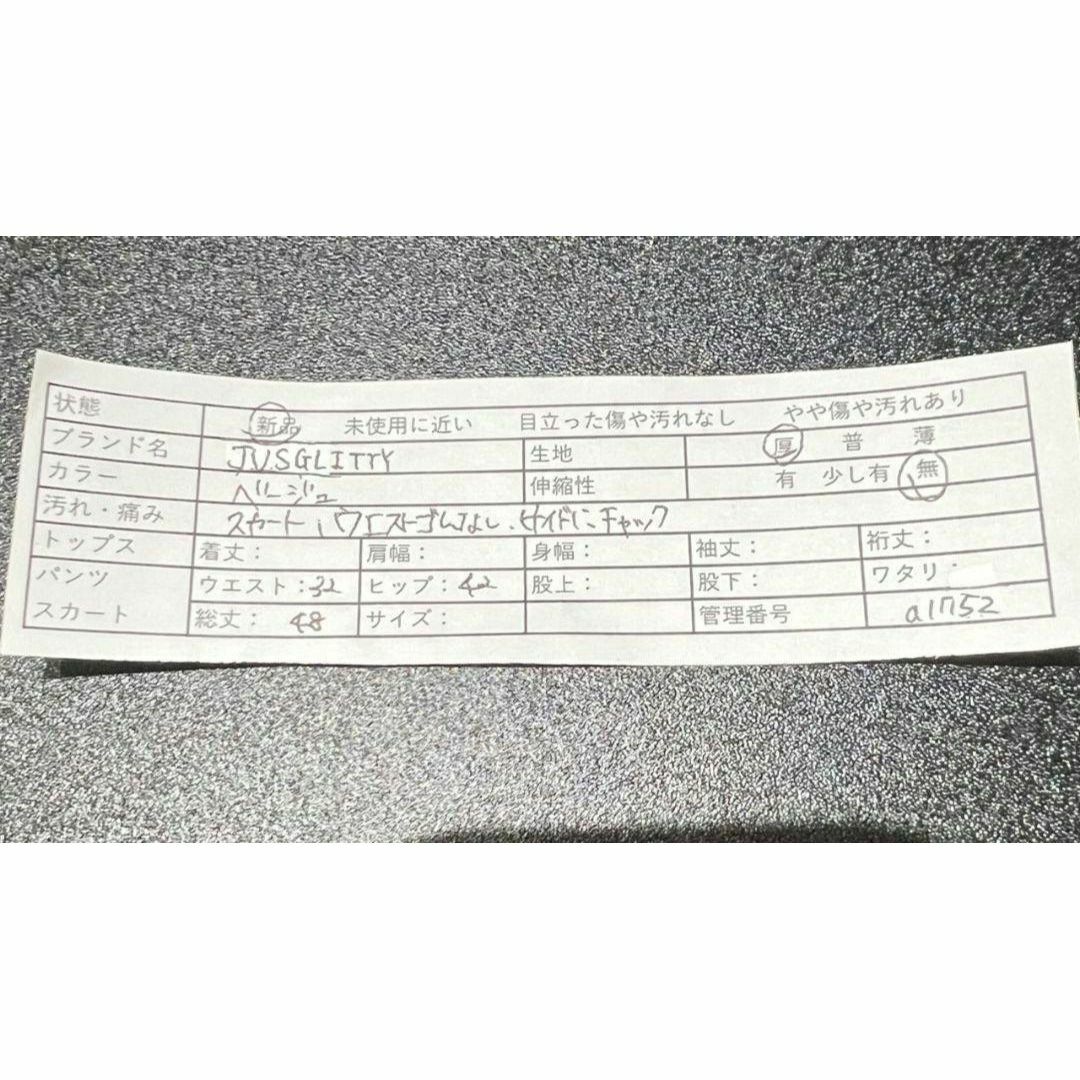 状態 新品 未使用に近い 目立った傷や汚れなし やや傷や汚れあり
ブランド名 JVSGLITTY 生地 厚 普 薄
カラー ベージュ 伸縮性 有 少し有 無
汚れ・痛み スカート、ウエストゴムなし、サイドにチャック
トップス 着丈： 肩幅： 身幅： 袖丈： 裄丈：
パンツ ウエスト：32 ヒップ：42 股上： 股下： ワタリ：
スカート 総丈： 48 サイズ： 管理番号 a1752